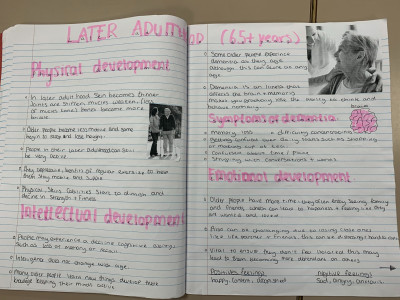 LATER ADULTHOOD (65+ years)
Physical development
In later adulthood. Skin becomes thinner
Joints are stiffen, muscles weaken. (loss
of muscle tone) bones become more
brittle
Older People become less mobile and some
begin to stoop and lose height.
People in their later adulthood can still
be very active
benefits of regular exercise to help
them stay mobile and supple
Physical Skills (abilities) Starts to diminish and
decline in strength & fitness
Intellectual development
People may experience a decline cognitive ability
Such as loss of memory or
Intelligence does not change with age.
Many older adults learn new things
keeping their minds active
Some older people experience
dementia as they age.
Although this can occur at any
age.
Dementia is an illness that
affects the brain & memory
makes you gradually lose the ability to think and
behave normally
Symptoms of dementia
memory loss
difficulty concentrating
getting confused over daily tasks such as shopping
or making cup of tea
confused about time / place
Struggling with conversations & words
Emotional development
Older people have more time - they often enjoy seeing family
and friends, which can lead to happiness & feeling like they
are wanted and loved
due to losing loved ones
like life partner or friends, this can be
Vital to ensure they don't feel isolated this may
lead to them becoming more dependent on others
Positive feelings
Negative feelings
Happy, Content,
Sad, Grieving,